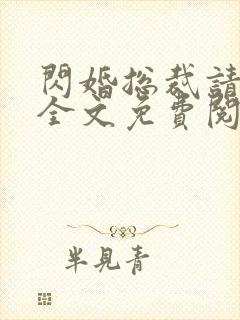 閃婚総裁請
全文免費閱
半見青